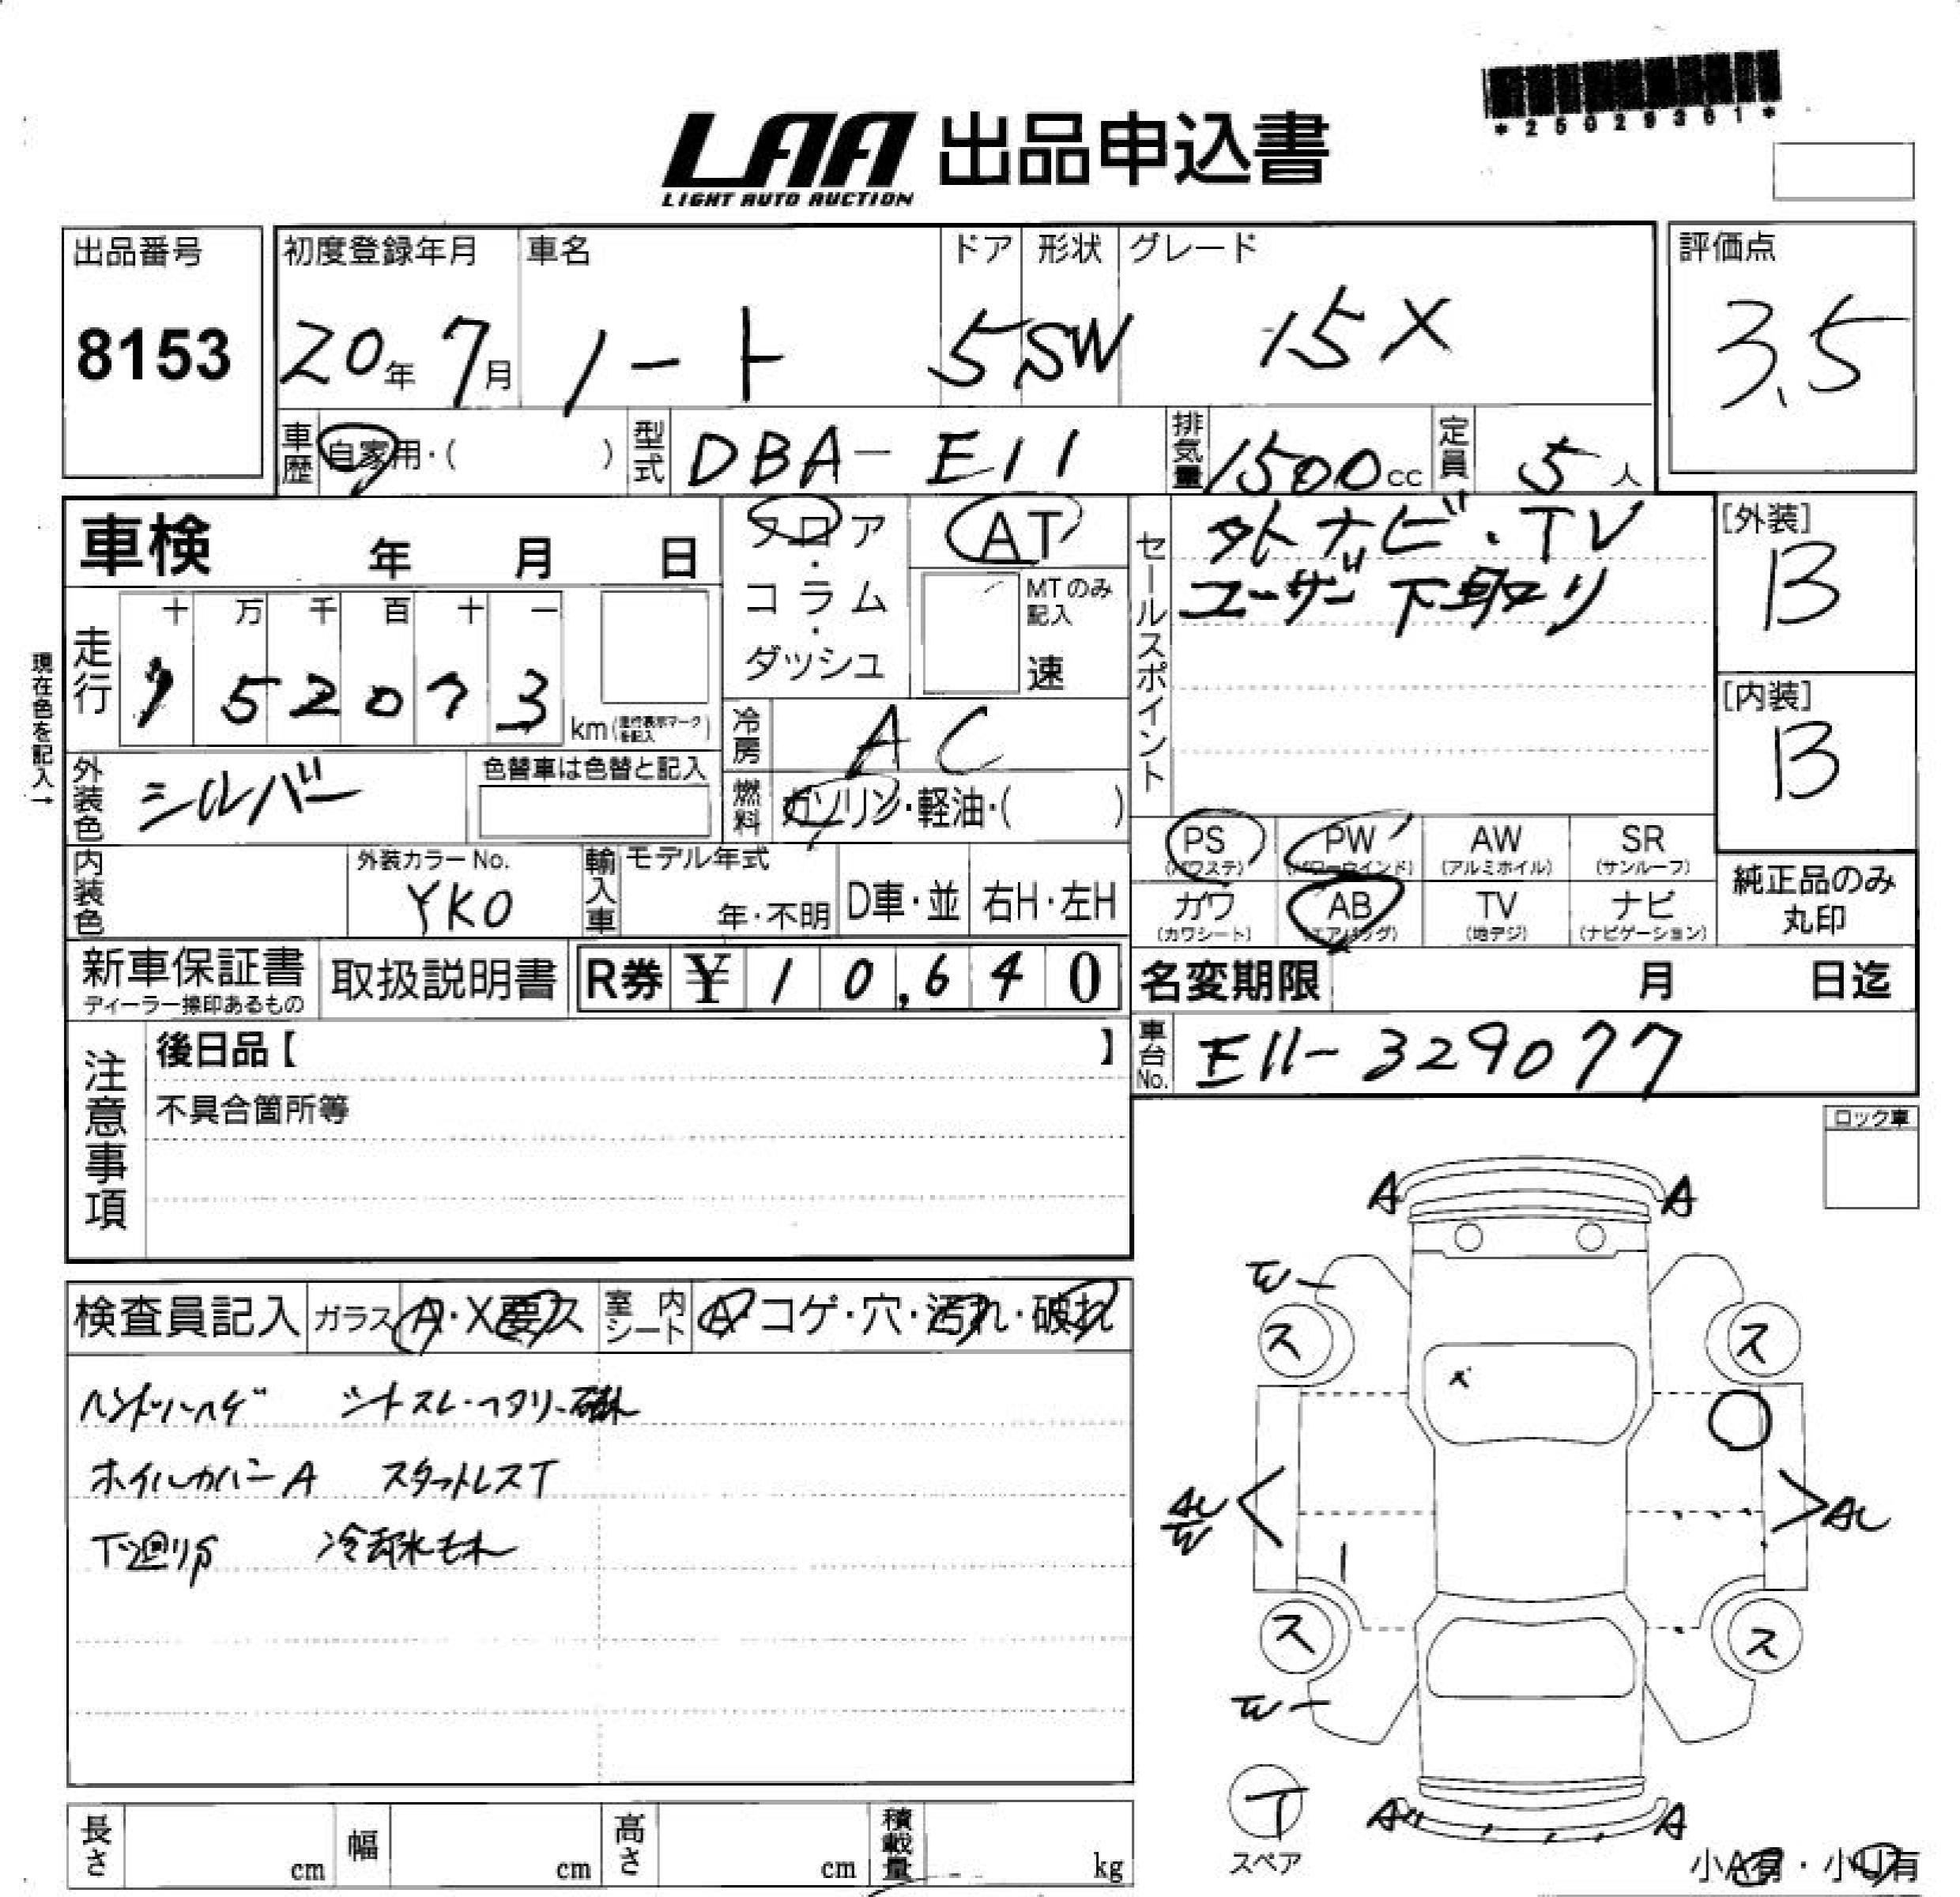 *25029361*
LAA 出品申込書
LIGHT AUTO AUCTION
出品番号 初度登録年月 車名 ドア 形状 グレード 評価点
8153 20年 7月 ノート 5 SW 15X 3.5
車歴 自家用・( ) 型式 DBA-E11 排気量 1500cc 定員 5人
車検 年 月 日 フロア・コラム・ダッシュ AT
MTのみ記入
速
セールスポイント
外ナビ・TV
ユーザー下取り
[外装]
B
[内装]
B
現在色を記入→
走行 十 万 千 百 十 一
152073 km(走行表示マークを記入)
冷房 AC
外装色 シルバー 色替車は色替と記入
燃料 ガソリン・軽油・( )
PS PW AW SR
(パワステ) (パワーウインド) (アルミホイル) (サンルーフ)
カワ AB TV ナビ
(カワシート) (エアバッグ) (地デジ) (ナビゲーション)
純正品のみ
丸印
内装色 外装カラーNo. YK0 輸入車 モデル年式 年・不明 D車・並 右H・左H
新車保証書 取扱説明書 R券 ¥10,640 名変期限 月 日迄
ディーラー捺印あるもの
車台No. E11-329077
注意事項
後日品【 】
不具合箇所等
ロック車
検査員記入 ガラス A・X要ス 室内シート A・コゲ・穴・汚れ・破れ
ハンドルハゲ シートスレ・ヘタリ・破れ
ホイルカバーA スタットレスT
下廻りサ 冷却水もれ
A A
ス ス
AU
AU
ス ス
T
スペア
A A
小A有・小U有
長さ cm 幅 cm 高さ cm 積載量 kg